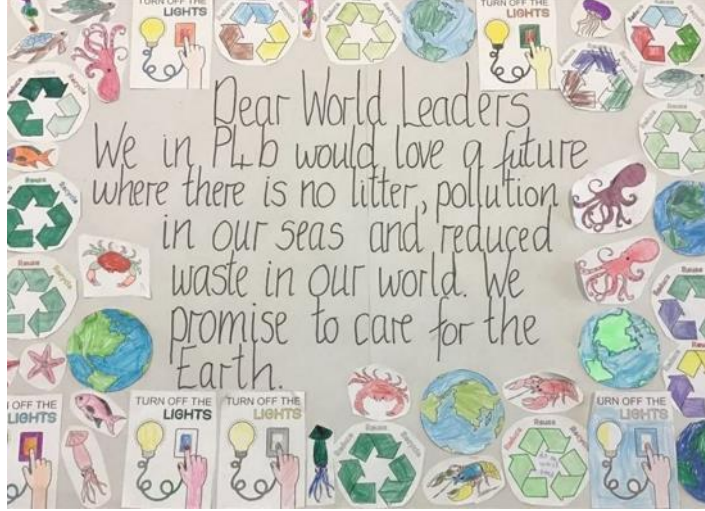 TURN OFF THE
LIGHTS
TURN OFF THE
LIGHTS
Dear World Leaders
We in P4b would love a future
where there is no litter, pollution
in our seas and reduced
waste in our world. We
promise to care for the
Earth.
Reduce
Recycle
Reuse
Recycle
Reuse
Recycle
Reuse
TURN OFF THE
LIGHTS
TURN OFF THE
LIGHTS
TURN OFF THE
LIGHTS
Reduce
Reuse
Recycle
Reduce
Reuse
Recycle
TURN OFF THE
LIGHTS